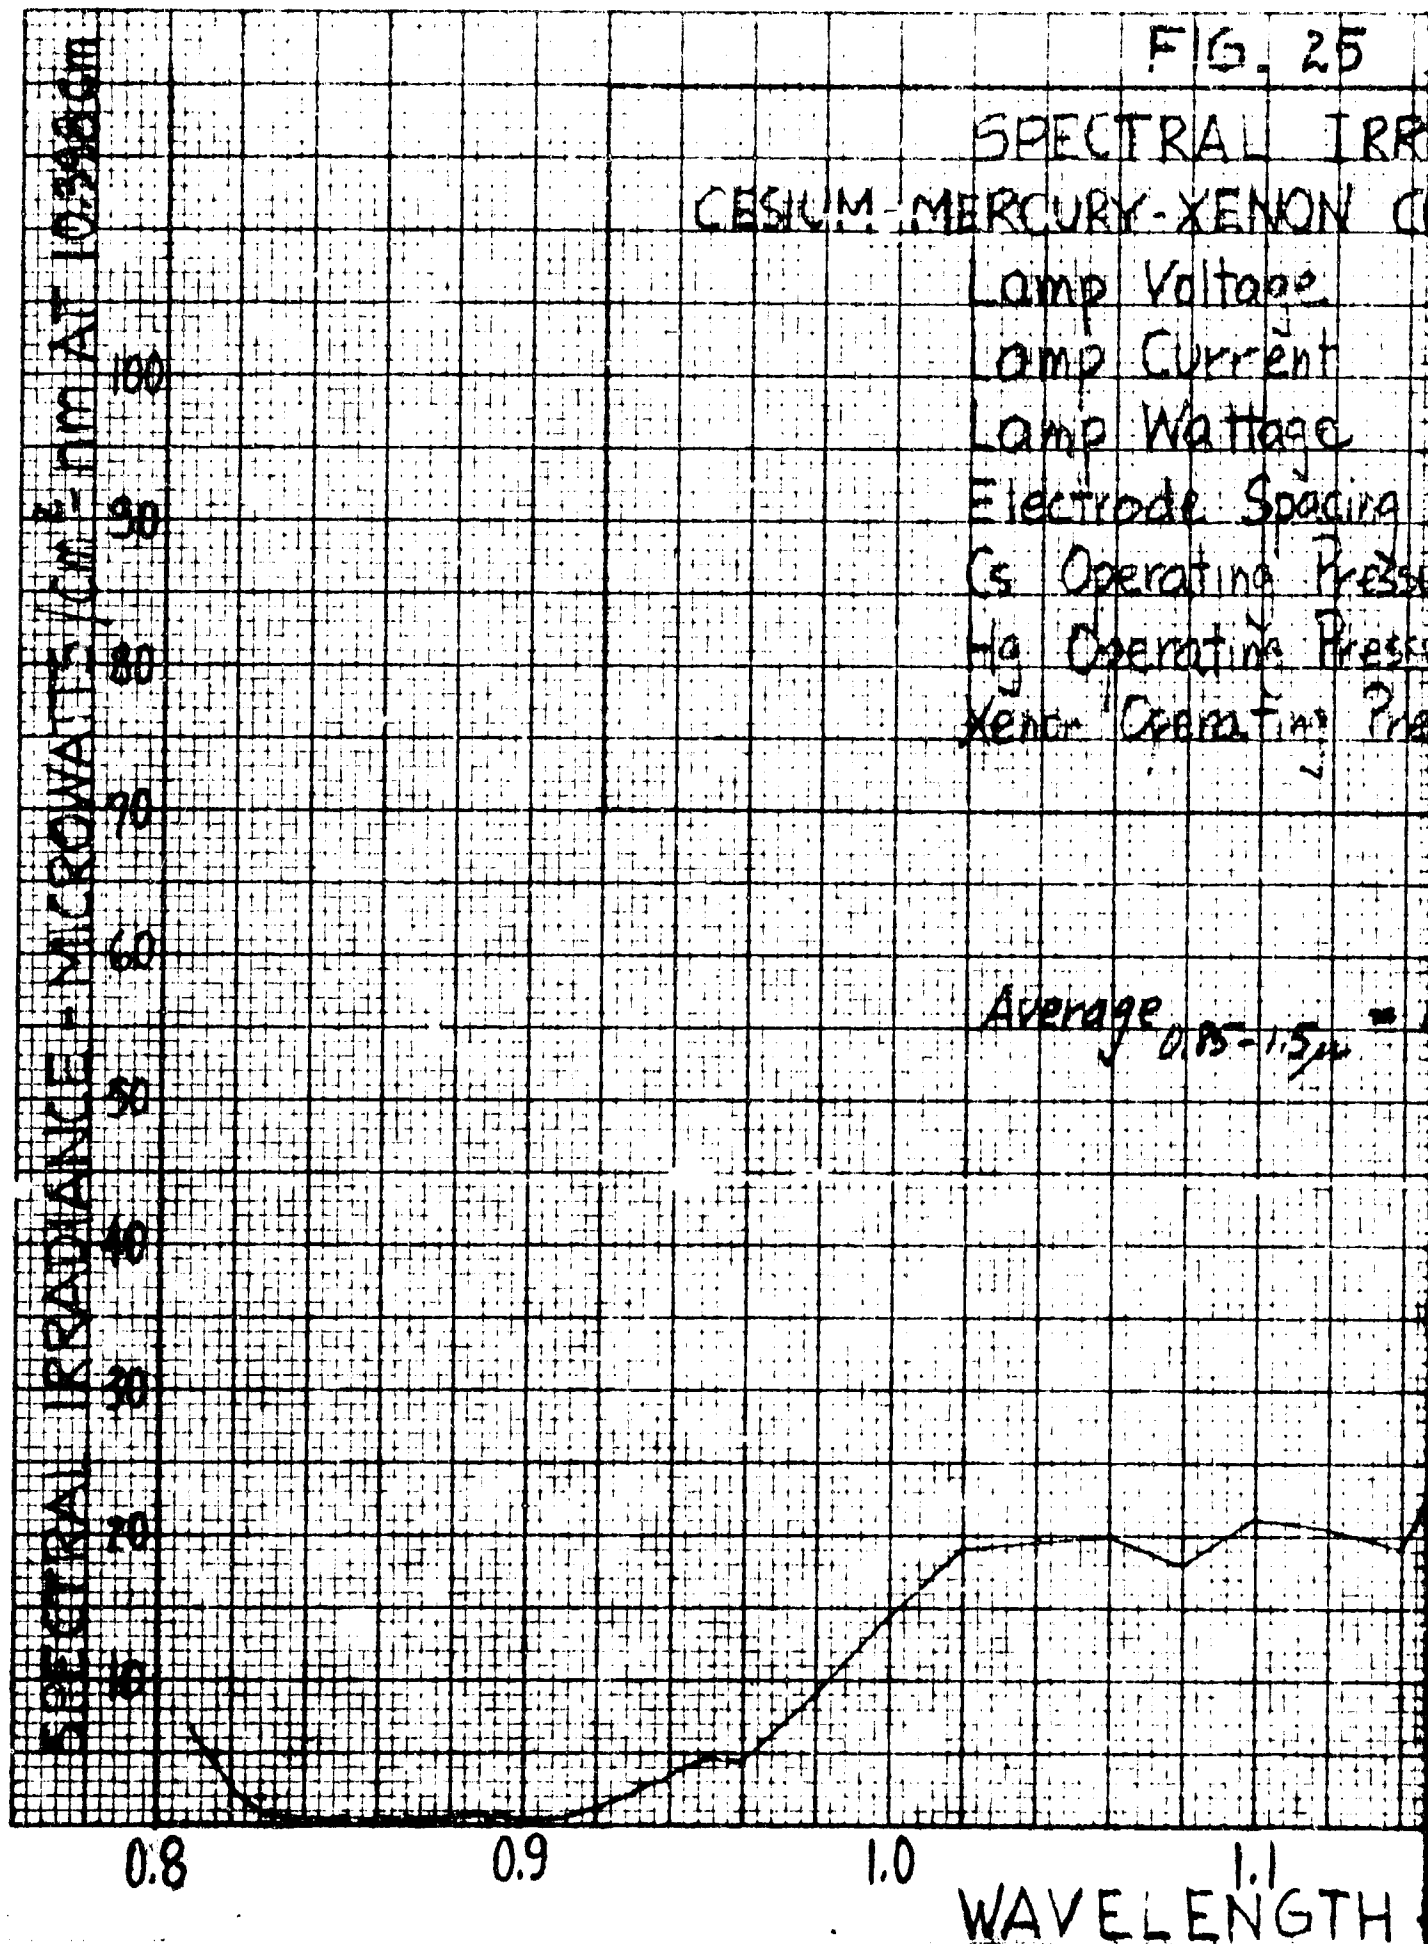 FIG. 25
SPECTRAL IRR
CESIUM-MERCURY-XENON C
Lamp Voltage
Lamp Current
Lamp Wattage
Electrode Spacing
Cs Operating Pressu
Hg Operating Press
Xenon Operating Pre
Average 0.85-1.5μ =
SPECTRAL IRRADIANCE - MICROWATTS/cm²-nm AT cm
100
90
80
70
60
50
40
30
20
10
0.8 0.9 1.0 1.1
WAVELENGTH